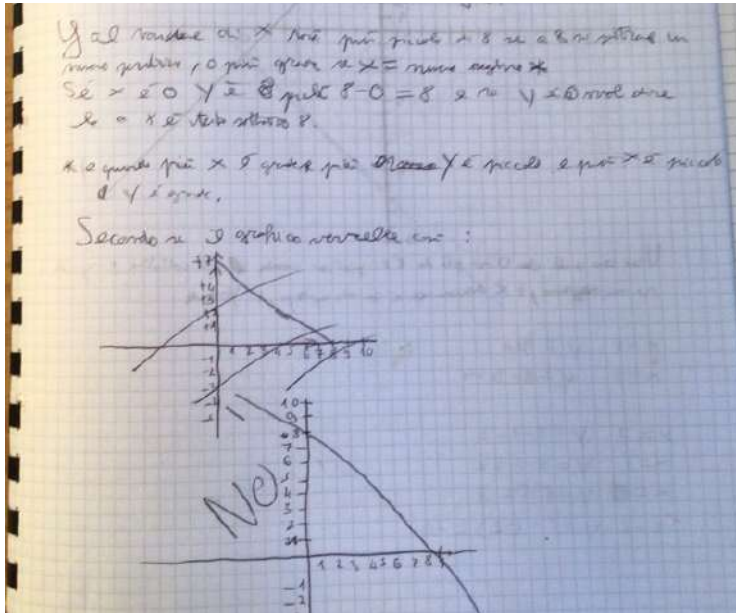 Y al variare di x sarà più piccolo di 8 se a 8 si sottrae un
numero positivo, o più grande se x = numero negativo *
Se x è 0 Y è 8 perché 8-0=8 e se y è 0 vuol dire
che a x è stato sottratto 8.
* e quando più x è grande più Y è piccolo e più x è piccolo
Y è grande.
Secondo me il grafico verrebbe così :
+7
1 2 3 4 5 6 7 8 9 10
-1
-2
10
9
8
7
6
5
4
3
2
1
NO
1 2 3 4 5 6 7 8 9
-1
-2